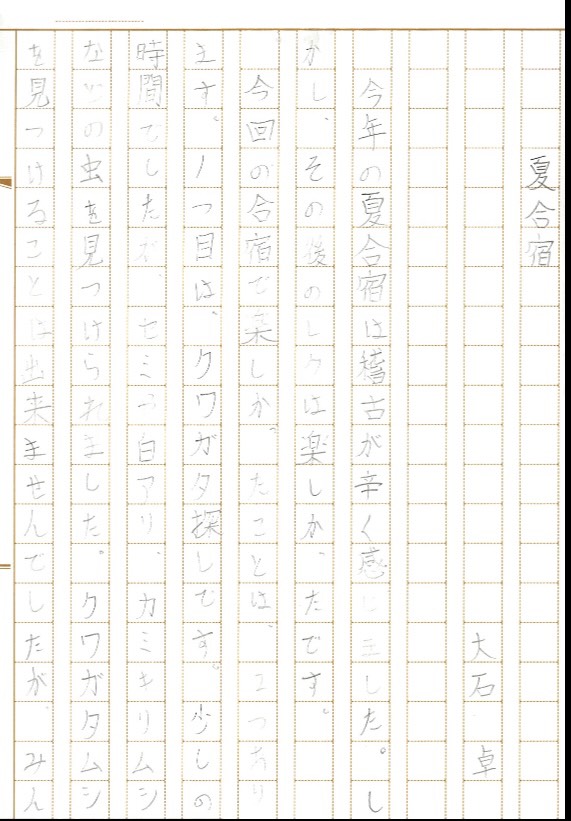 夏合宿
大石 卓
今年の夏合宿は稽古が辛く感じました。し
かし、その後のレクは楽しかったです。
今回の合宿で楽しかったことは、2つあり
ます。1つ目は、クワガタ探しです。少しの
時間でしたが、セミや白アリ、カミキリムシ
などの虫を見つけられました。クワガタムシ
を見つけることは出来ませんでしたが、みん